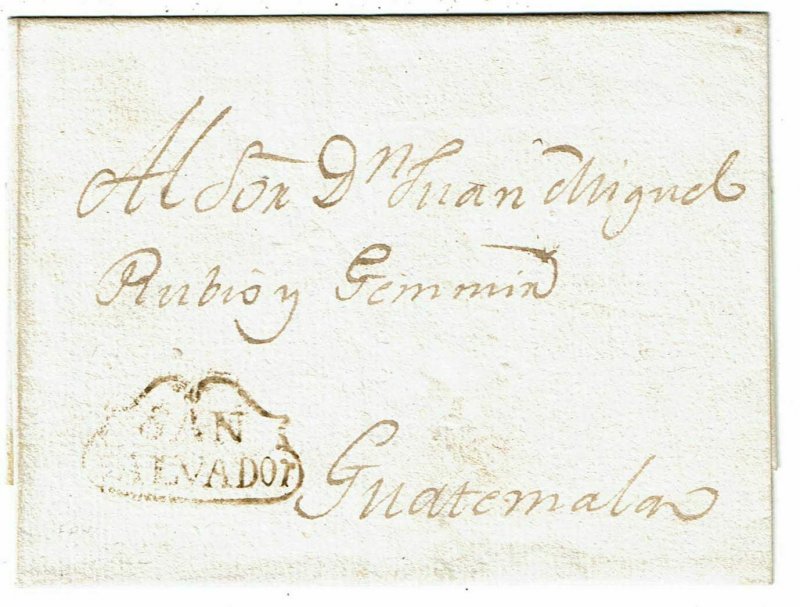 Al Sor Dn Juan Miguel
Rubio y Gemmir
SAN
SALVADOr
Guatemala